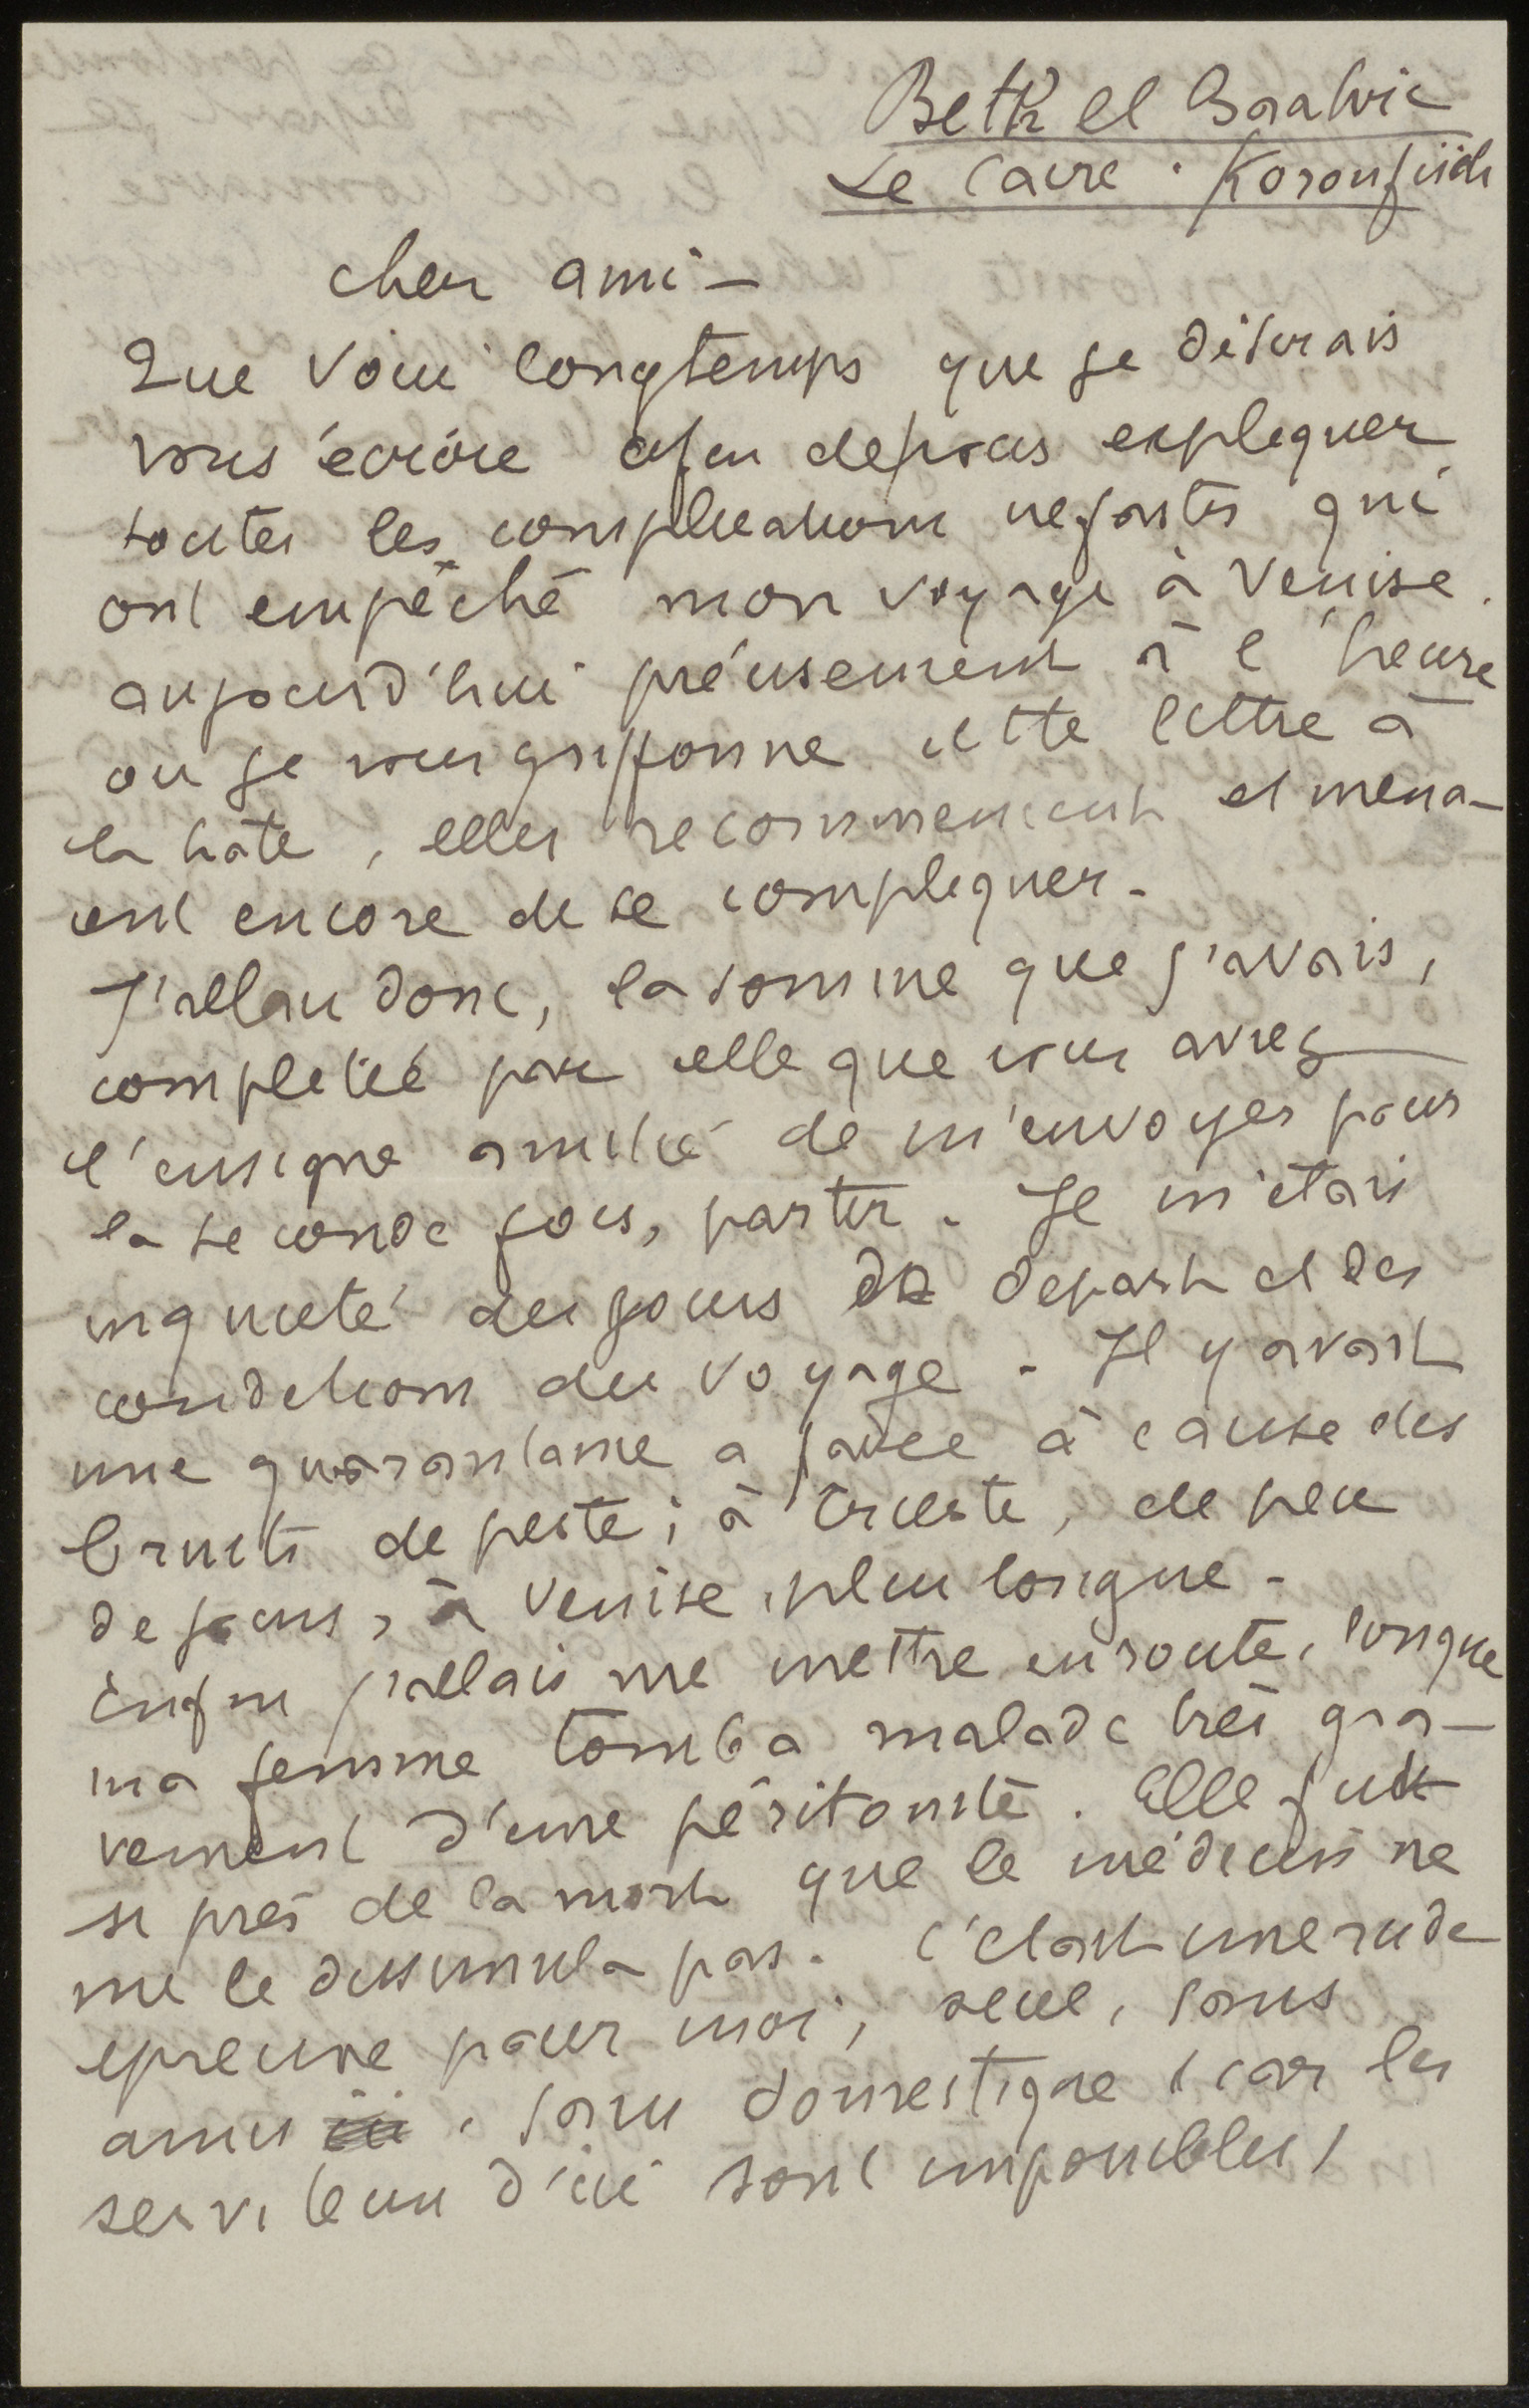 Beth el
Le Caire . Koronfich
cher ami –
Que voici longtemps que je désirais
vous écrire afin de vous expliquer
toutes les complications nefastes qui
ont empêché mon voyage à Venise.
aujourd'hui précisement à l'heure
ou je vous griffonne cette lettre à
la hâte, elles recommencent et mena-
cent encore de se compliquer.
J'allais donc, la somme que j'avais,
completée par celle que vous aviez
l'insigne amitié de m'envoyer pour
la seconde fois, partir. Je m'étais
inquieté des jours de depart et des
conditions du voyage. Il y avait
une quarantaine a faire à cause des
bruits de peste ; à Trieste, de peu
de jours, à Venise, plus longue.
Enfin j'allais me mettre en route, lorsque
ma femme tomba malade très gra-
vement d'une péritonite. Elle fut
si près de la mort que le médecin ne
me le dissimula pas. C'était une rude
epreuve pour moi, seul, sans
amis , sans domestique (car les
serviteurs d'ici sont impossibles)